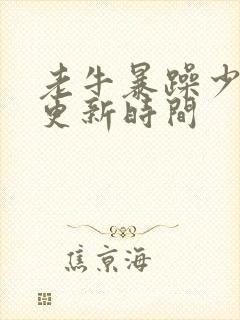 老牛暴躁少
更新時間
焦京海